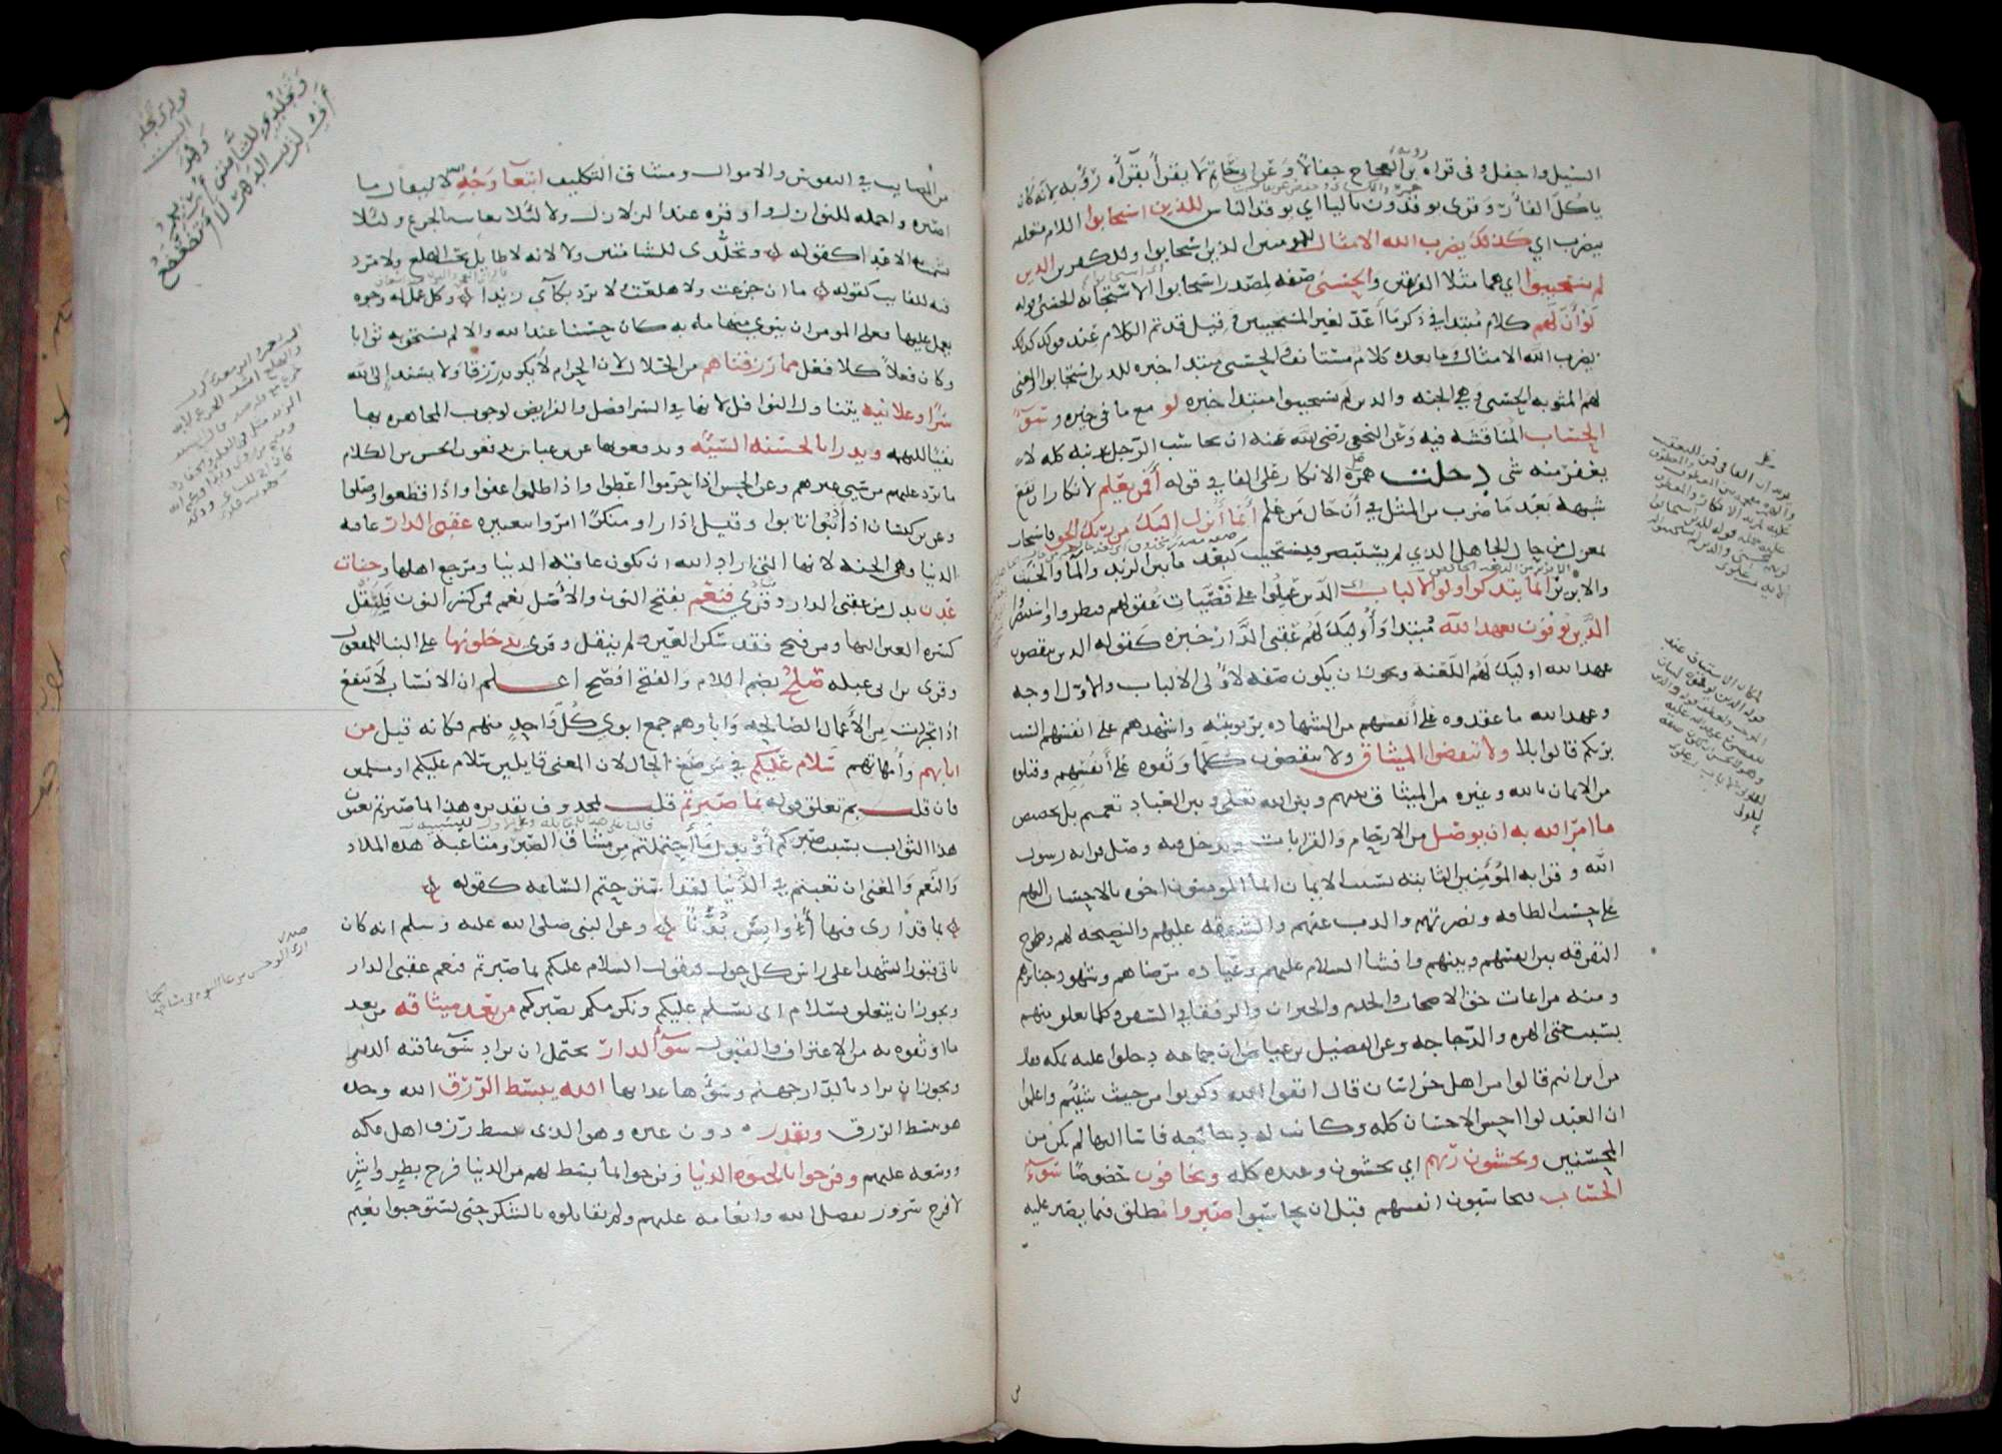 السيل واجفل وفي قراه رؤبة بن العجاج جفالا وعن ابي حاتم لا يقرأ بقرآه رؤبه لانه كان
ياكل الفار وقرى يوقدون باليا اي يوقد الناس للذين استجابوا اللام متعلقه
بيضرب اي كذلك يضرب الله الامثال للمومنين الذين استجابوا وللكفرين الذين
لم يستجيبوا اي هما مثلا الفريقين والحسنى صفه لمصدر استجابوا الاستجابه الحسنى وقوله
لو أن لهم كلام مبتدا في ذكر ما أعد لغير المستجيبين وقيل قد تم الكلام عند قوله كذلك
يضرب الله الامثال وما بعده كلام مستانف والحسنى مبتدا خبره للذين استجابوا والمعنى
لهم المثوبه الحسنى وهي الجنه والذين لم يستجيبوا مبتدا خبره لو مع ما في حيزه وسوء
الحساب المناقشه فيه وعن النخعي رضي الله عنه ان يحاسب الرجل بذنبه كله لا
يغفر منه شي دخلت همزة الانكار على الفا في قوله أفمن يعلم لانكار ان تقع
شبهه بعد ما ضرب من المثل في أن حال من علم أنما أنزل اليك من ربك الحق فاستجاب
بمعزل من حال الجاهل الذي لم يستبصر فيستجيب كبعد ما بين الزبد والمآ والخبث
والابريز انما يتذكر اولوا الالباب اي الذين عملوا على قضيات عقولهم فنظروا واستبصروا
الذين يوفون بعهد الله مبتدا وأوليك لهم عقبى الدار خبره كقوله والذين ينقضون
عهد الله اوليك لهم اللعنه ويجوز ان يكون صفه لاولى الالباب والاول اوجه
وعهد الله ما عقدوه على أنفسهم من الشهاده بربوبيته واشهدهم على انفسهم الست
بربكم قالوا بلا ولا ينقضوا الميثاق ولا ينقضون كلما وثقوه على أنفسهم وقبلوه
من الايمان بالله وغيره من المواثيق بينهم وبين الله تعلى وبين العباد تعميم بعد تخصيص
ما امر الله به ان يوصل من الارحام والقرابات ويدخل فيه وصل قرابه رسول
الله وقرابه المؤمنين الثابته بسبب الايمان انما المومنون اخوه بالاحسان اليهم
على حسب الطاقه ونصرتهم والذب عنهم والشفقه عليهم والنصيحه لهم وطرح
التفرقه بين انفسهم وبينهم وافشا السلام عليهم وعياده مرضاهم وشهود جنايزهم
ومنه مراعات حق الاصحاب والخدم والجيران والرفقا في السفر وكلما تعلق منهم
بسبب حتى الهره والدجاجه وعن الفضيل بن عياض ان جماعه دخلوا عليه بمكه فقال
من اين انتم قالوا من اهل خراسان قال اتقوا الله وكونوا من حيث شيتم واعلموا
ان العبد لو احسن الاحسان كله وكانت له دجاجه فاسا اليها لم يكن من
المحسنين ويخشون ربهم اي يخشون وعيده كله ويخافون خصوصا سوء
الحساب فيحاسبون انفسهم قبل ان يحاسبوا صبروا مطلق فيما يصبر عليه
من المصايب في النفوس والاموال ومشاق التكليف ابتغآ وجه الله لا ليقال ما
اصبره واحمله للنوازل واوقره عند الزلازل ولا لئلا يعاب بالجزع ولئلا
يشمت به الاعدا كقوله وتجلدى للشامتين ولا لانه لا طايل تحت الهلع ولا مرد
فيه للفايت كقوله ما ان جزعت ولا هلعت ولا يرد بكآي زيدا وكل عمل له وجوه
يعمل عليها فعلى المومن ان ينوي منها ما به كان حسنا عند الله والا لم يستحق به ثوابا
وكان فعلا كلا فعل مما رزقناهم من الحلال لان الحرام لا يكون رزقا ولا يسند إلى الله
سرا وعلانيه يتناول النوافل لانها في السر افضل والفرايض لوجوب المجاهره بها
نفيا للتهمه ويدرؤن بالحسنه السيئه ويدفعونها عن بن عباس يدفعون بالحسن من الكلام
ما يرد عليهم من سيى غيرهم وعن الحسن اذا حرموا اعطوا واذا ظلموا عفوا واذا قطعوا وصلوا
وعن بن كيسان اذا أذنبوا تابوا وقيل اذا راو منكرا امروا بتغييره عقبى الدار عاقبه
الدنيا وهي الجنه لانها التي اراد الله ان تكون عاقبه الدنيا ومرجع اهلها وجنات
عدن بدل من عقبى الدار وقرى فنعم بفتح النون والأصل نعم فمن كسر النون فلنقل
كسره العين اليها ومن فتح فقد سكن العين ولم ينقل وقرى يدخلونها على البنا للمفعول
وقرى بن ابي عبله صلح بضم اللام والفتح افصح اعلم ان الانساب لا تنفع
اذا تجردت من الأعمال الصالحه وآباوهم جمع ابوي كل واحد منهم فكانه قيل من
ابايهم وأمهاتهم سلام عليكم في موضع الحال لان المعنى قايلين سلام عليكم او مسلمين
فان قلت بم تعلق قوله بما صبرتم قلت بمحذوف تقديره هذا بما صبرتم يعنون
هذا الثواب بسبب صبركم أو بدل ما احتملتم من مشاق الصبر ومتاعبه هذه الملاذ
والنعم والمعنى ان تعبتم في الدنيا لقد استرحتم الساعه كقوله
بما قد أرى فيها أوانس بدنا وعن النبي صلى الله عليه وسلم انه كان
ياتي قبور الشهدا على راس كل حول فيقول السلام عليكم بما صبرتم فنعم عقبى الدار
ويجوز ان يتعلق بسلام اى نسلم عليكم ونكرمكم بصبركم من بعد ميثاقه من بعد
ما اوثقوه به من الاعتراف والقبول سوء الدار يحتمل ان يراد سوء عاقبه الدنيا
ويجوز ان يراد بالدار جهنم وسوها عذابها الله يبسط الرزق الله وحده
هو يبسط الرزق ويقدر دون غيره وهو الذى بسط رزق اهل مكه
ووسعه عليهم وفرحوا بالحيوه الدنيا وفرحوا بما بسط لهم من الدنيا فرح بطر واشر
لا فرح سرور بفضل الله وانعامه عليهم ولم يقابلوه بالشكر حتى يستوجبوا نعيم
وتجلدي للشامتين أريهم
أني لريب الدهر لا أتضعضع